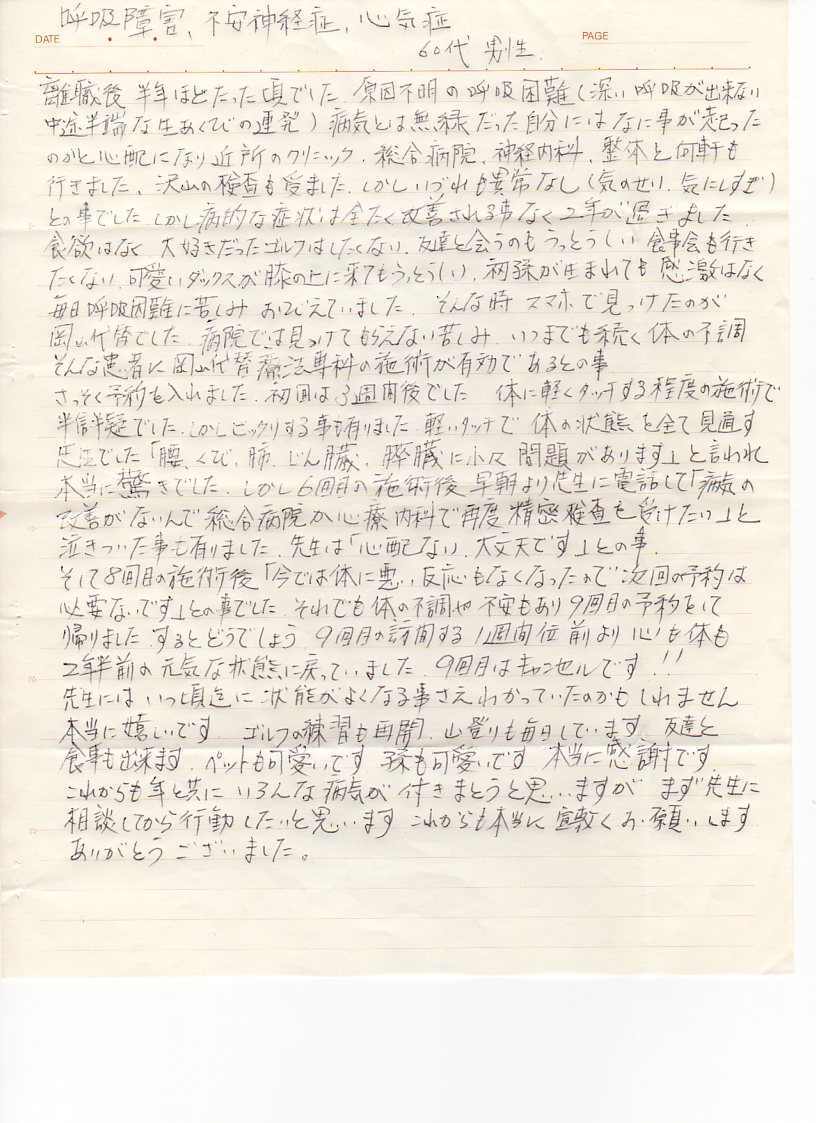 呼吸障害、不安神経症、心気症
DATE
60代 男性
PAGE
離職後 半年ほどたった頃でした 原因不明の呼吸困難(深い呼吸が出来ない
中途半端な生あくびの連発) 病気とは無縁だった自分にはなに事が起こった
のかと心配になり近所のクリニック、総合病院、神経内科、整体と何軒も
行きました、沢山の検査も受ました、しかしいづれも異常なし(気のせい、気にしすぎ)
との事でした しかし病的な症状は全たく改善される事なく2年が過ぎました
食欲はなく 大好きだったゴルフはしたくない、友達と会うのもうっとうしい 食事会も行き
たくない、可愛いダックスが膝の上に来てもうっとうしい、初孫が生まれても感激はなく
毎日呼吸困難に苦しみ おびえていました、そんな時 スマホで見つけたのが
岡山代替でした 病院では見つけてもらえない苦しみ、いつまでも続く体の不調
そんな患者に岡山代替療法専科の施術が有効であるとの事
さっそく予約を入れました、初回は3週間後でした 体に軽くタッチする程度の施術で
半信半疑でした、しかしビックリする事も有りました、軽いタッチで 体の状態を全て見通す
先生でした「腰、くび、肺、じん臓、膵臓に小々問題があります」と言われ
本当に驚きでした、しかし6回目の施術後 早朝より先生に電話して「病気の
改善がないんで総合病院か心療内科で再度精密検査を受けたい」と
泣きついた事も有りました、先生は「心配ない、大丈夫です」との事、
そして8回目の施術後「今では体に悪い反応もなくなったので次回の予約は
必要ないです」との事でした それでも体の不調や不安もあり9回目の予約をして
帰りました するとどうでしょう 9回目の訪問する1週間位前より心も体も
2年半前の元気な状態に戻っていました 9回目はキャンセルです!!
先生には いつ頃迄に状態がよくなる事さえわかっていたのかもしれません
本当に嬉しいです ゴルフの練習も再開、山登りも毎日しています 友達と
食事も出来ます、ペットも可愛いです 孫も可愛いです 本当に感謝です、
これからも年と共に いろんな病気が 付きまとうと思いますが まず先生に
相談してから行動したいと思います これからも本当に宜敷くお願いします
ありがとうございました。